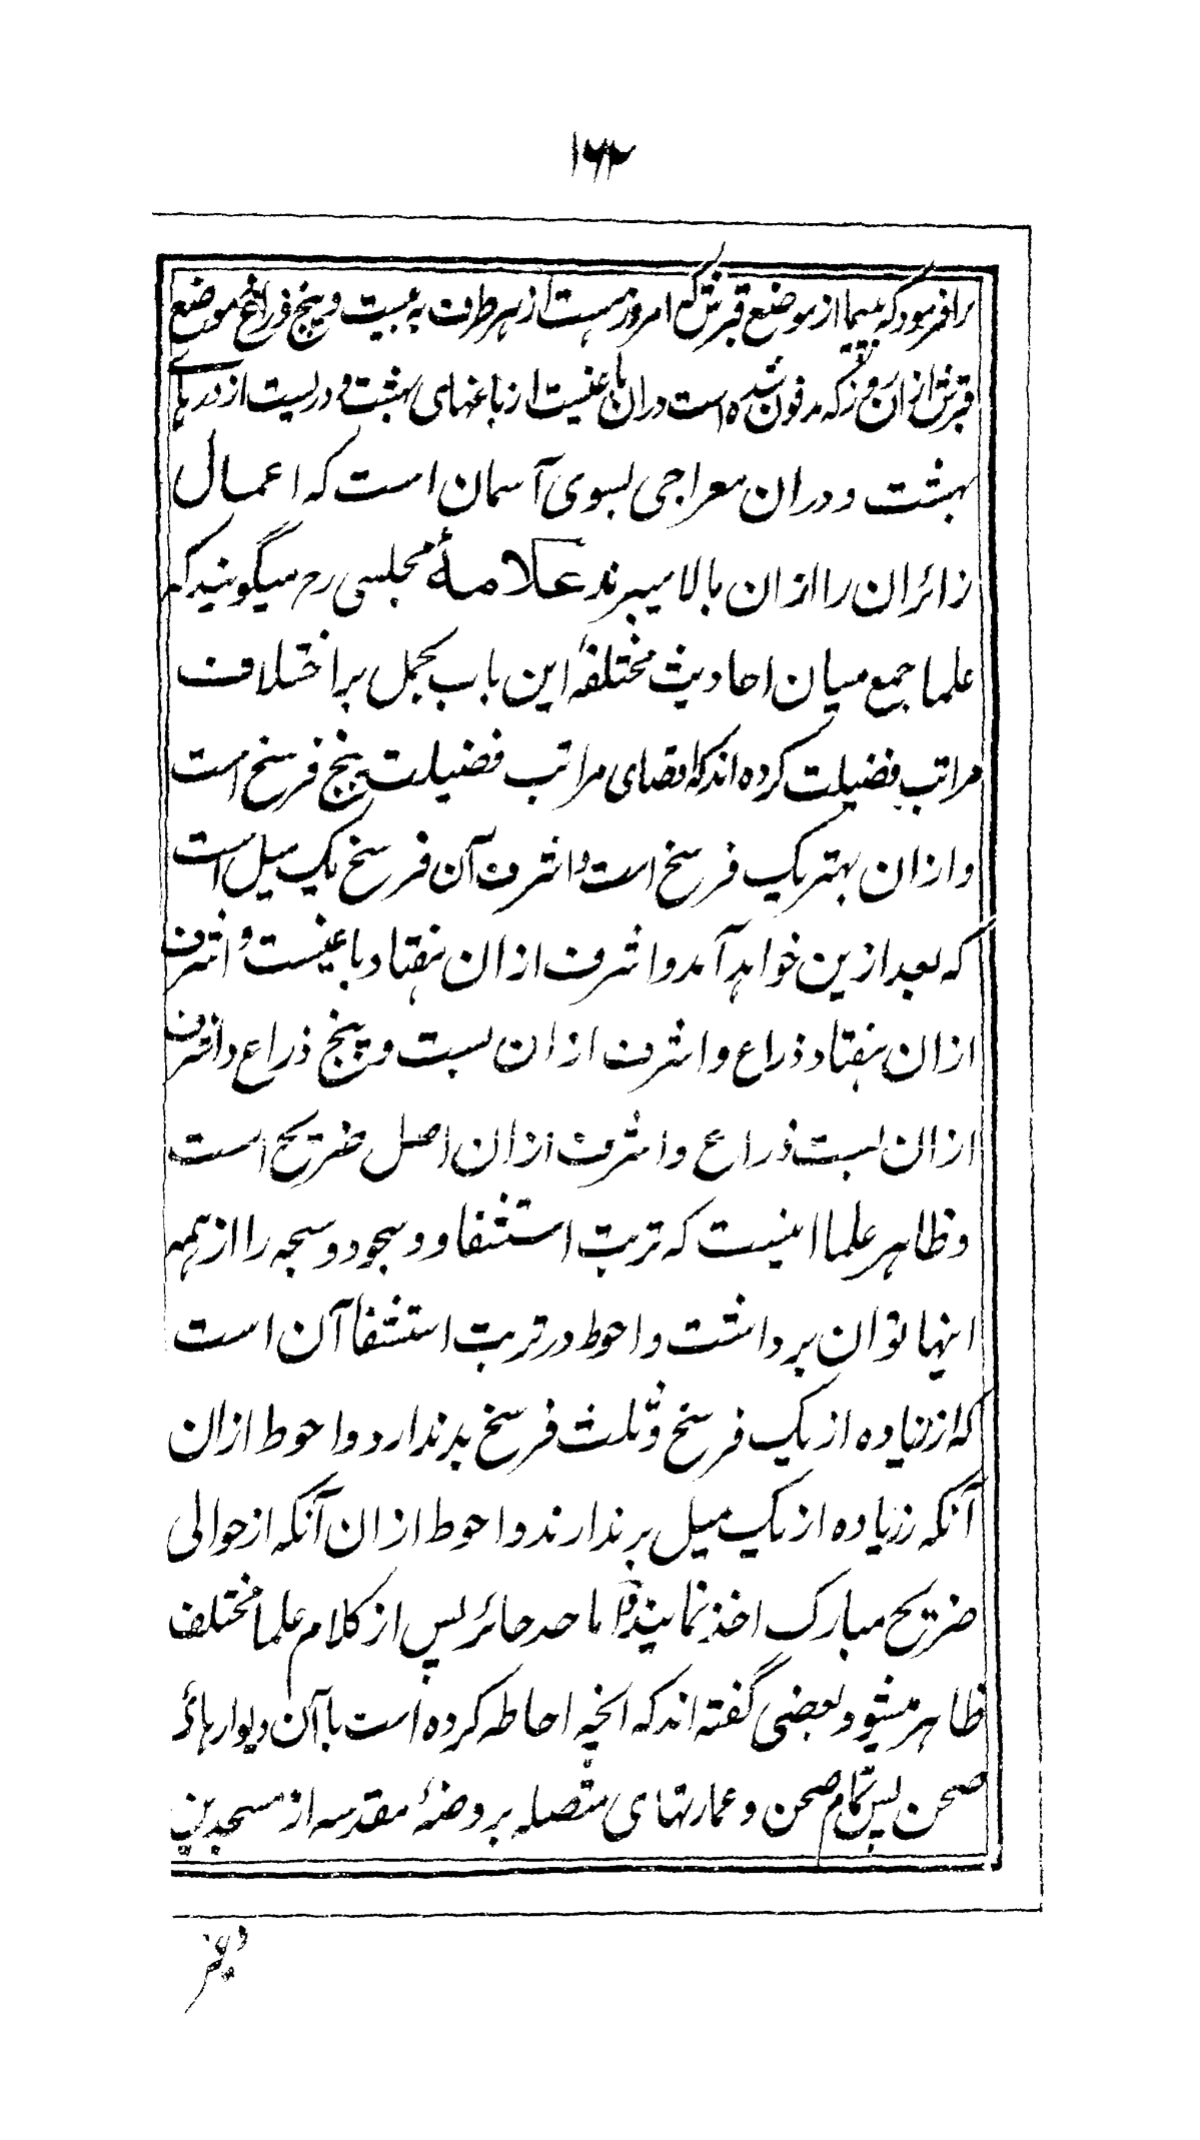 ۱۶۲
برا فرمود که بپیما از موضع قبرش که امروز هست از هر طرف به بیست و پنج ذراع موضع
قبرش از آن روز که مدفون شده است دران باغیست از باغهای بهشت و دریست از درهای
بهشت و دران معراجی بسوی آسمان است که اعمال
زائران را ازان بالا میبرند علامهٔ مجلسی رح میگویند که
علما جمع میان احادیث مختلفهٔ این باب بحمل بر اختلاف
مراتب فضیلت کرده اند که اقصای مراتب فضیلت پنج فرسخ است
و ازان بهتر یک فرسخ است و اشرف آن فرسخ یک میل است
که بعد ازین خواهد آمد و اشرف ازان هفتاد باعیست و اشرف
ازان هفتاد ذراع و اشرف ازان بست و پنج ذراع و اشرف
ازان بست ذراع و اشرف ازان اصل ضریح است
و ظاهر علما اینست که تربت استشفا و سجود و سبحه را از همه
اینها توان برداشت و احوط در تربت استشفا آن است
که از زیاده از یک فرسخ و ثلث فرسخ برندارد و احوط ازان
آنکه زیاده از یک میل برندارند و احوط ازان آنکه از حوالی
ضریح مبارک اخذ نمایند و اما حد حائر پس از کلام علما مختلف
ظاهر میشود و بعضی گفته اند که انچه احاطه کرده است بآن دیوارهای
صحن پس تمام صحن و عمارتهای متصله بروضهٔ مقدسه از مسجد پن